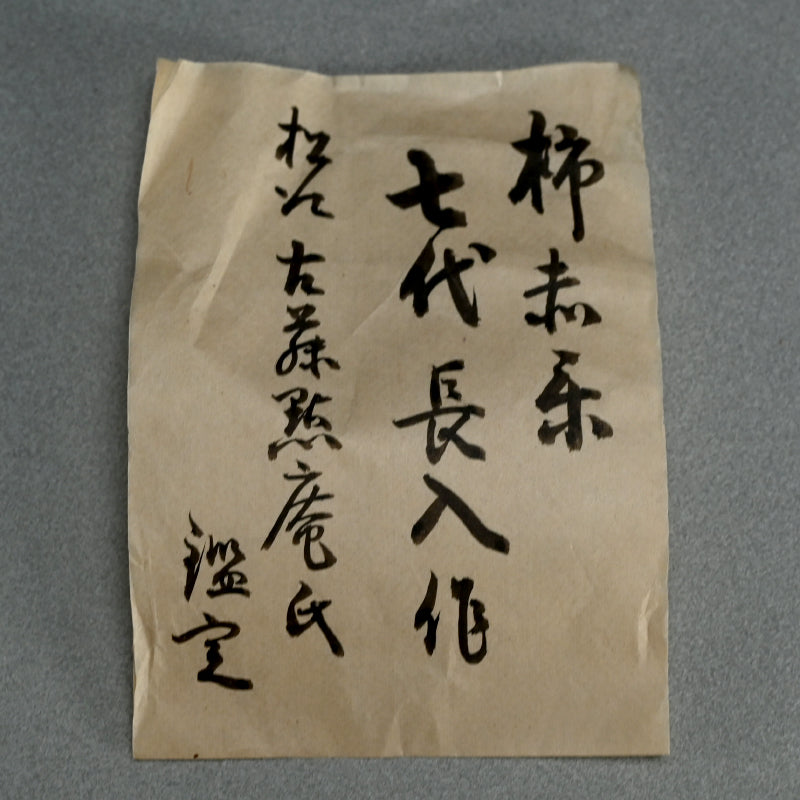 柿赤楽
七代 長入作
松江 古藤黙庵氏
鑑定